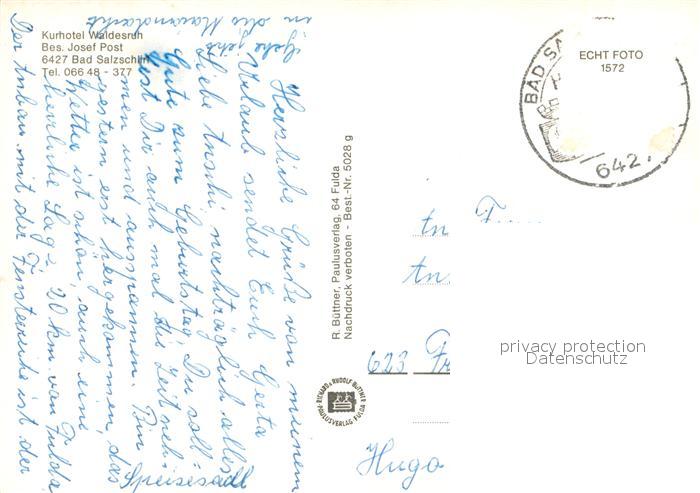 Kurhotel Waldesruh
Bes. Josef Post
6427 Bad Salzschlirf
Tel. 066 48 - 377
Herzliche Grüße von meinem
Urlaub sendet Euch Gesta
Liebe Anschi, nachträglich alles
Gute zum Geburtstag. Du soll-
test Dir auch mal die Zeit neh-
men und ausspannen. Bin
gestern erst hergekommen, das
Wetter ist schön, auch eine
herrliche Lage, 20 km. von Fulda
Der Anbau mit der Fensterreihe ist der
Speisesaal
Gehe jetzt
in die Maiandacht
R. Büttner, Paulusverlag, 64 Fulda
Nachdruck verboten - Best.-Nr. 5028 g
RICHARD & RUDOLF BÜTTNER
PAULUSVERLAG FULDA
BAD SA
642
ECHT FOTO
1572
An F.....
An
623 Fr
Hugo
privacy protection
Datenschutz